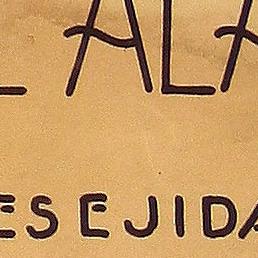 L ALA
ESEJIDA